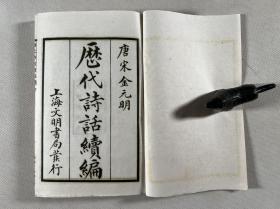 唐宋金元明
歷代詩話續編
上海文明書局發行